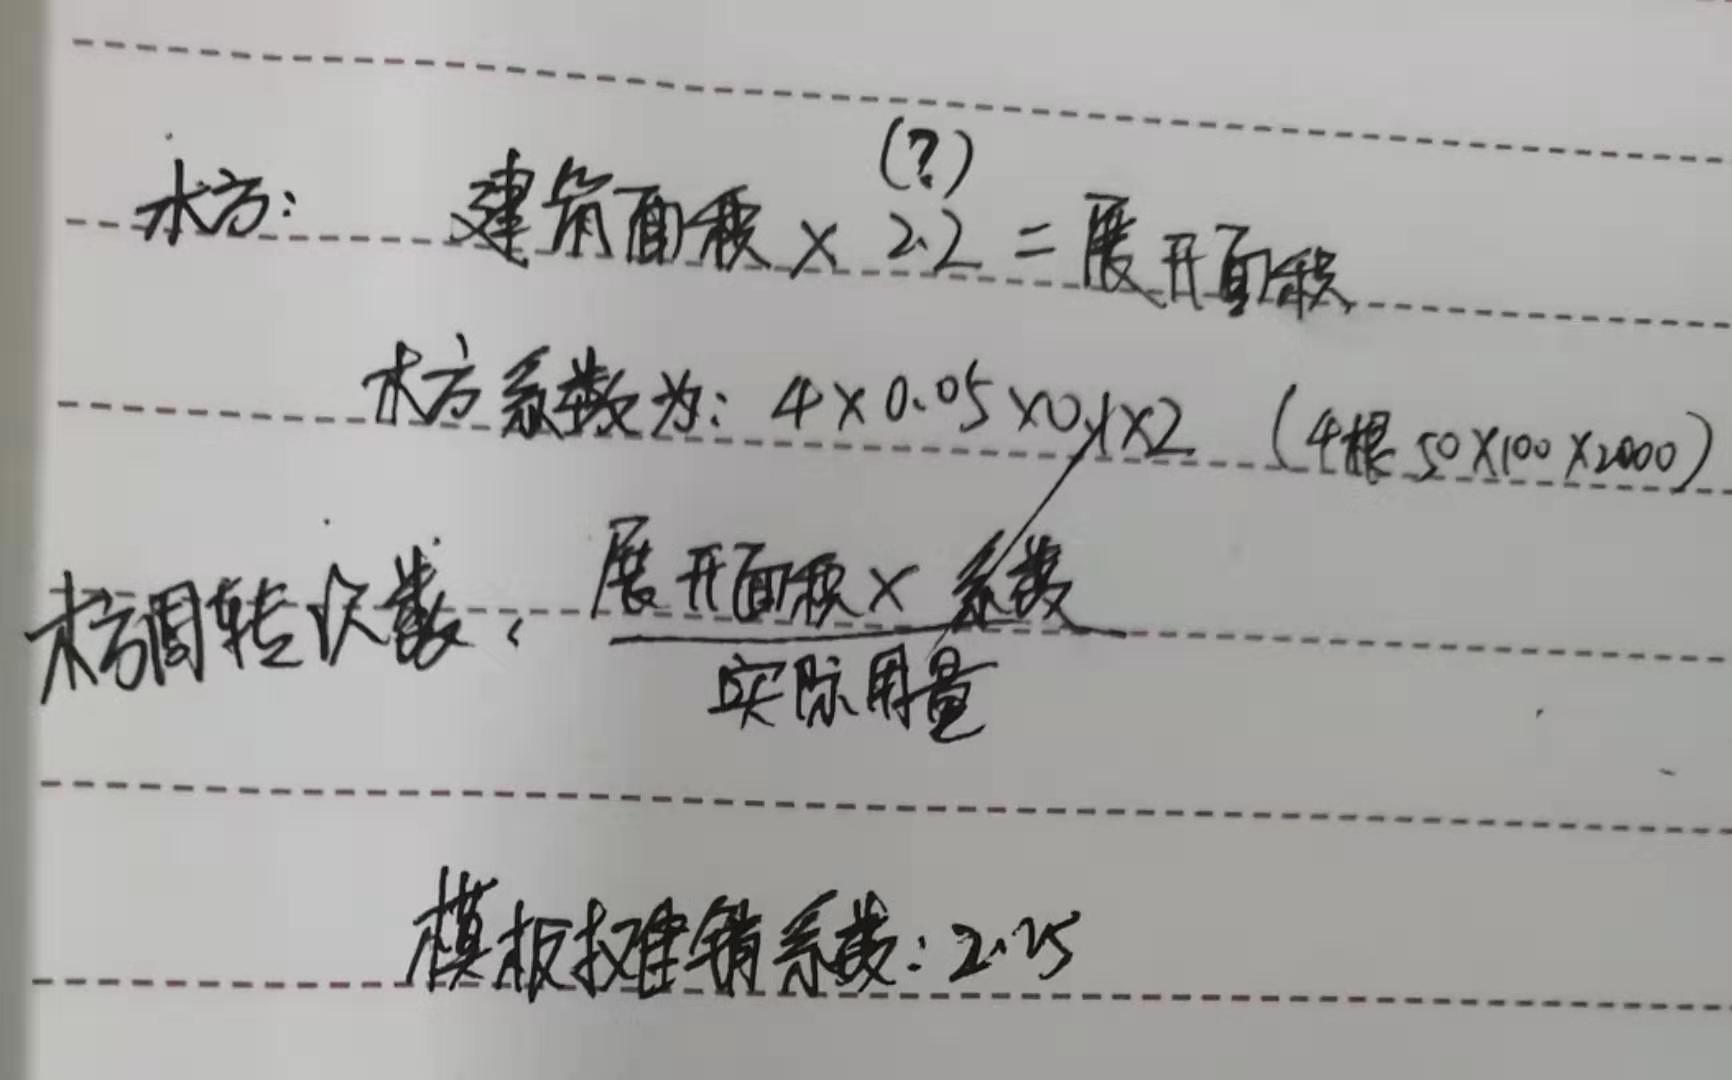 (?)
木方: 建筑面积 × 2.2 = 展开面积
木方系数为: 4×0.05×0.1×2 (4根 50×100×2000)
木方周转次数: 展开面积× 系数
实际用量
模板摊销系数: 2.25